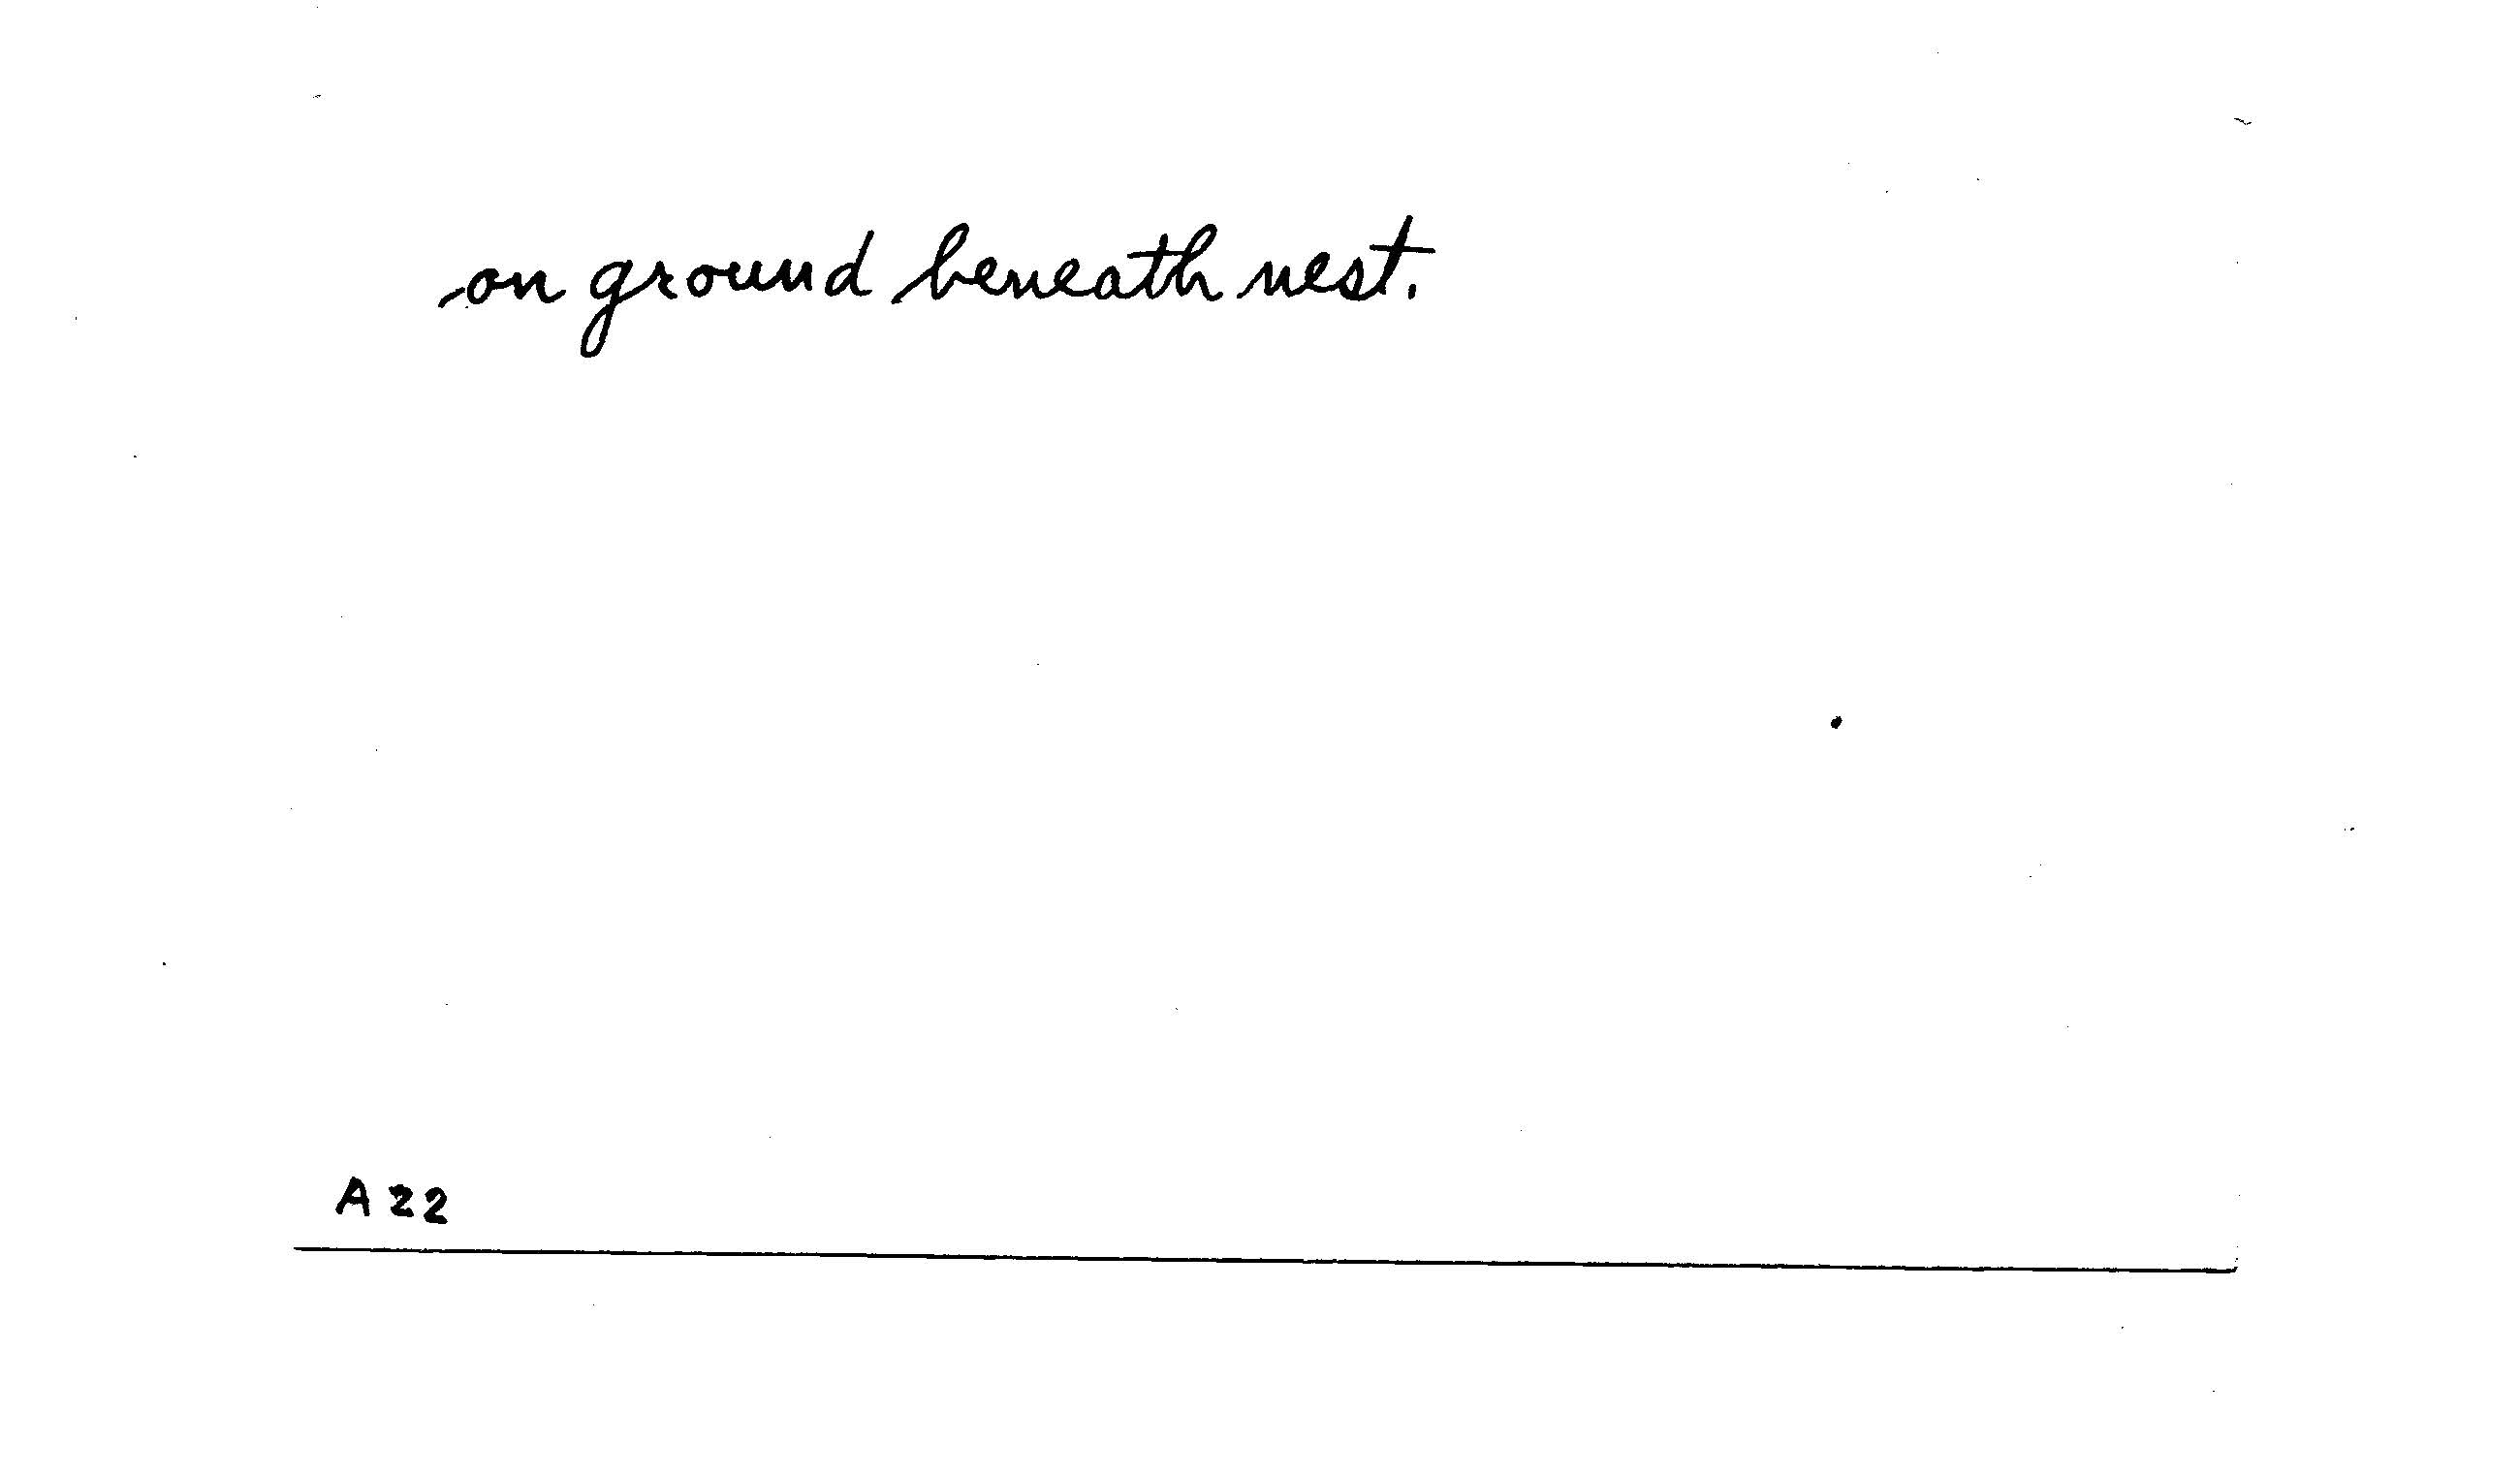 on ground beneath nest.
A22